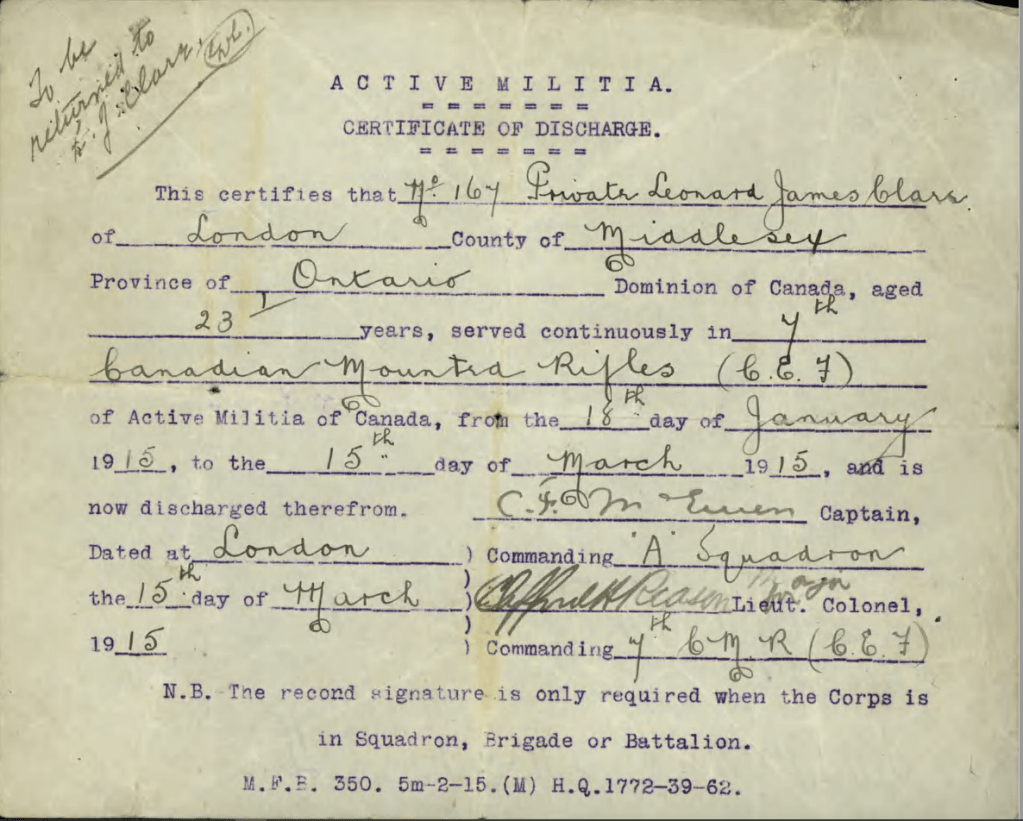 To be
returned to
J. Clark.
ACTIVE MILITIA.
= = = = = = =
CERTIFICATE OF DISCHARGE.
= = = = = = =
This certifies that No 167 Private Leonard James Clark.
of London County of Middlesex
Province of Ontario Dominion of Canada, aged
23 years, served continuously in 7th
Canadian Mounted Rifles (C.E.F)
of Active Militia of Canada, from the 18th day of January
1915, to the 15th day of March 1915, and is
now discharged therefrom. C.F. McEwen Captain,
Dated at London ) Commanding "A" Squadron
)
the 15th day of March ) Reason Major Lieut. Colonel,
)
1915 ) Commanding 7th C M R (C.E.F)
N.B. The recond signature is only required when the Corps is
in Squadron, Brigade or Battalion.
M.F.B. 350. 5m-2-15.(M) H.Q.1772-39-62.